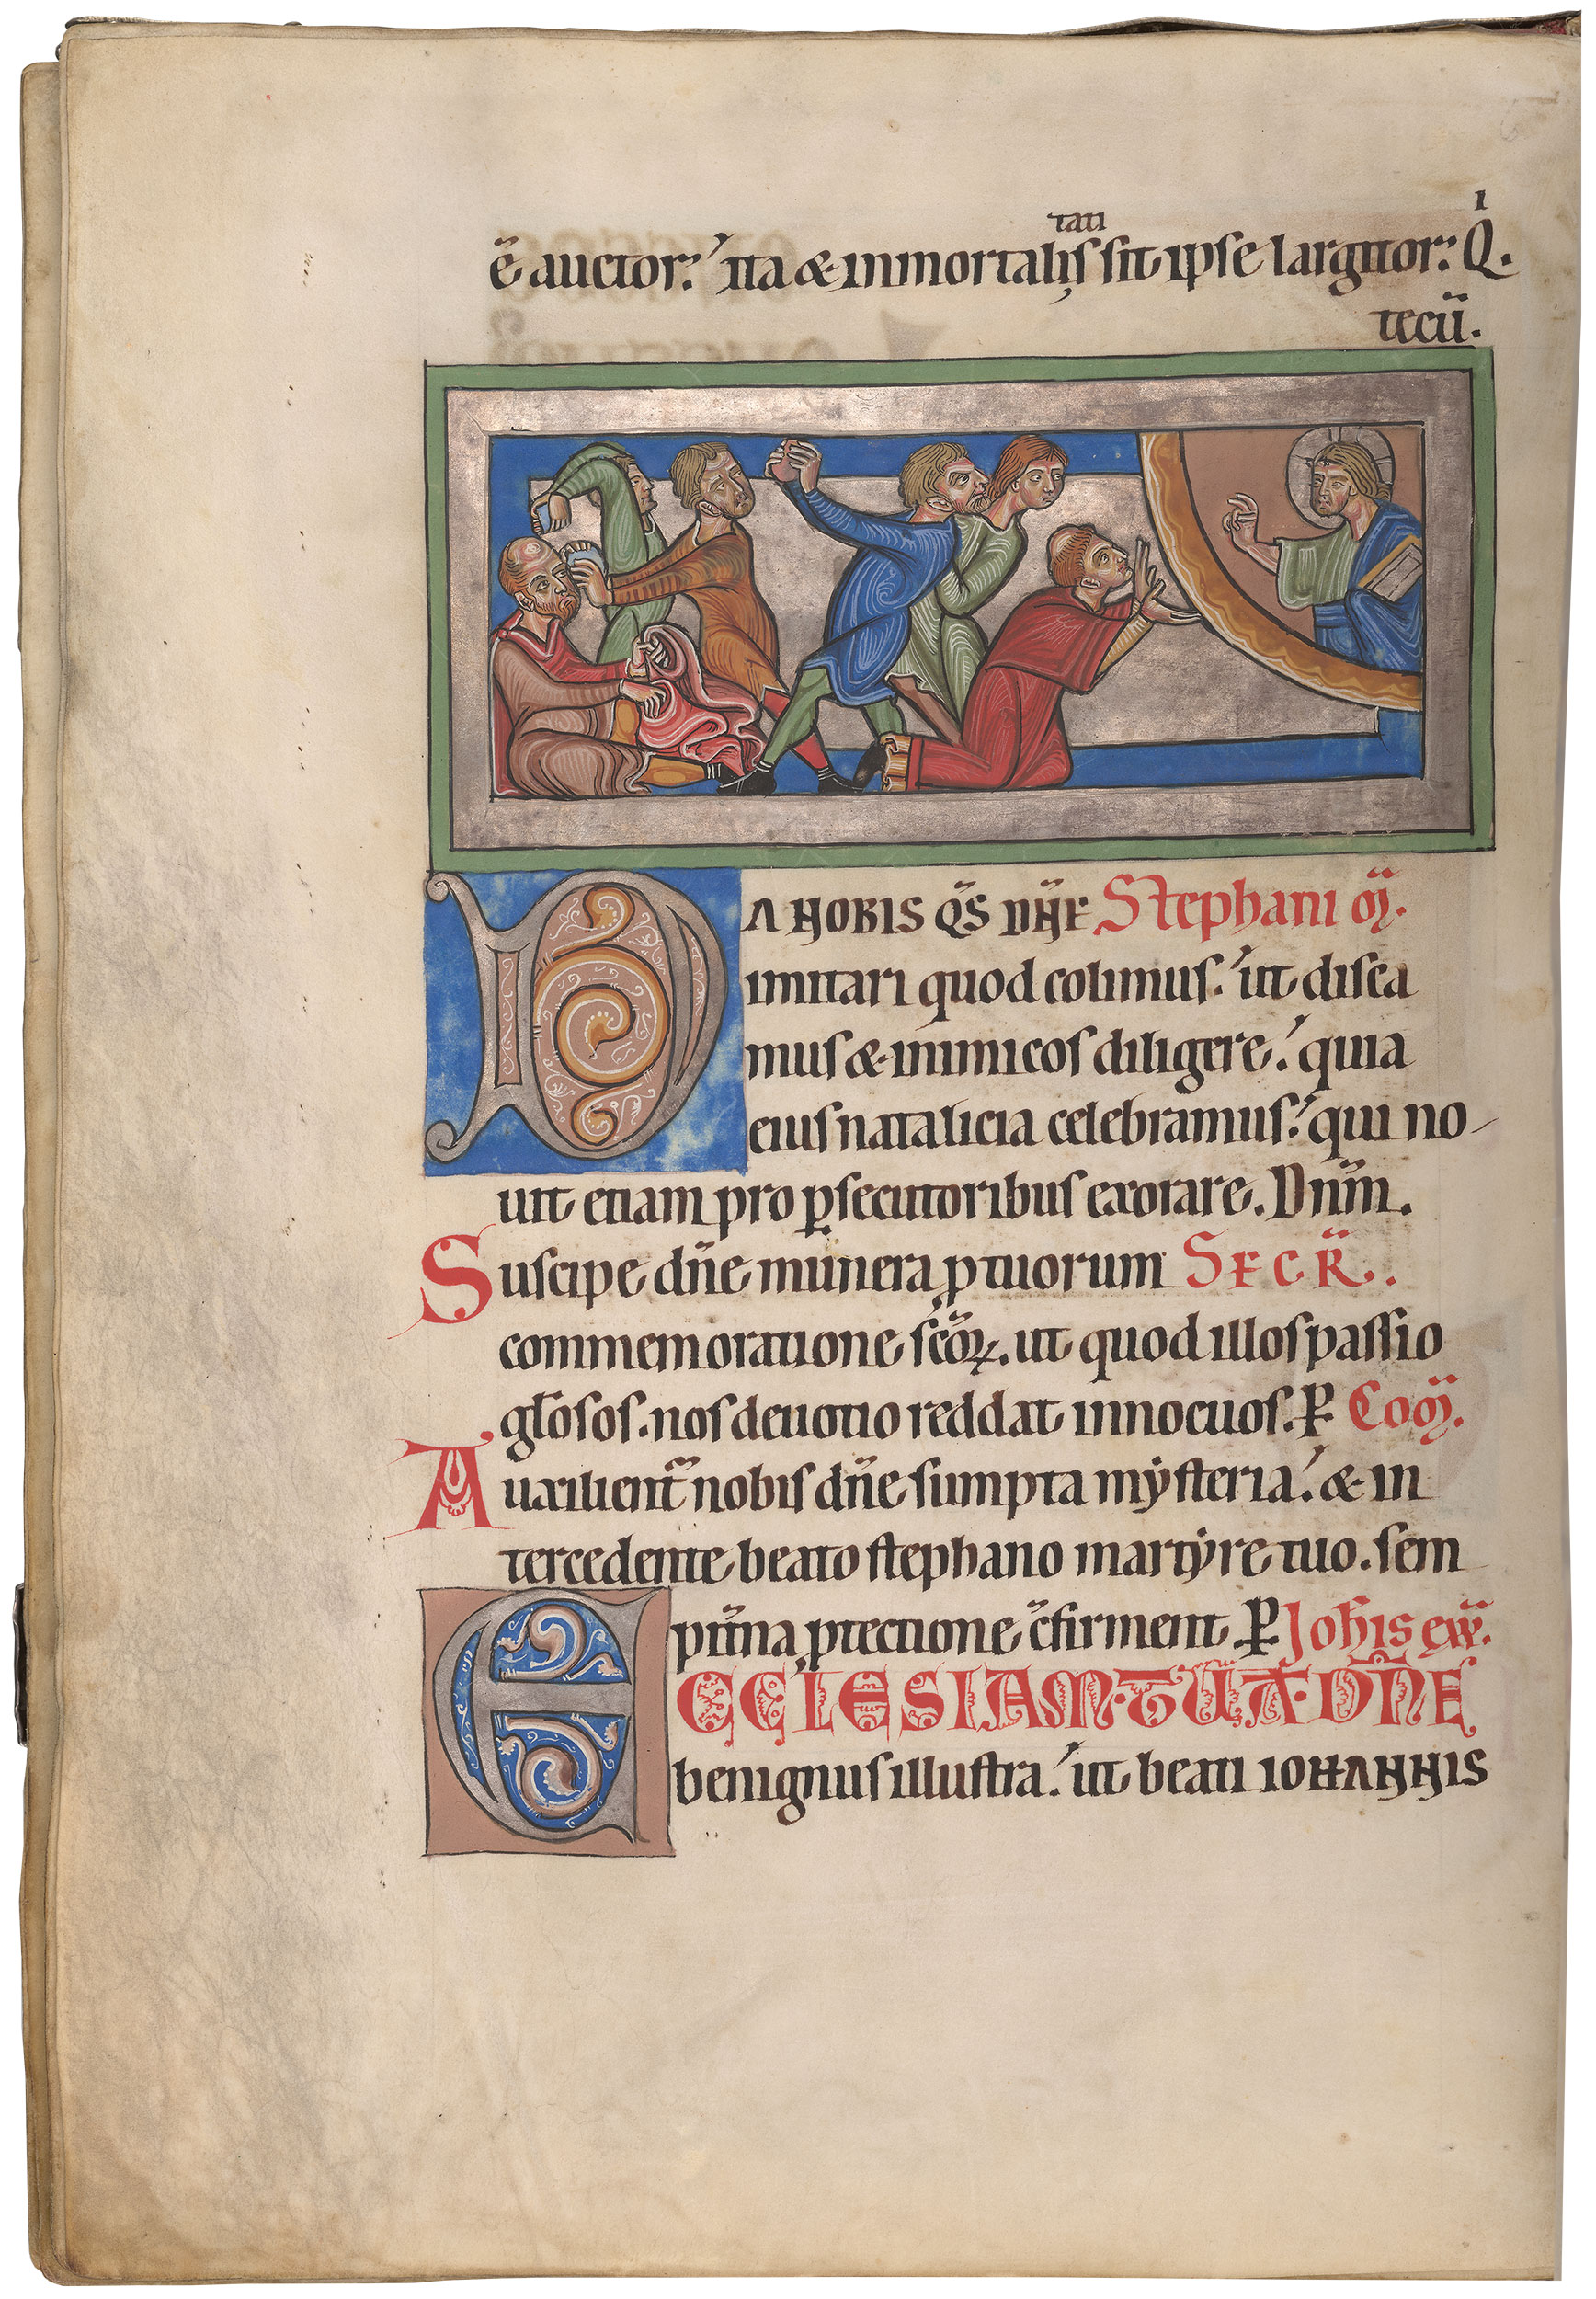 tati
ē auctor. ita & inmortalis sit ipse largitor. Q̇.
tecū.
DA NOBIS Q̄S DN̄E Stephani M̄.
imitari quod colimus. ut disca
mus & inimicos diligere. quia
eius natalicia celebramus. qui no-
uit etiam pro ꝑsecutoribus exorare. Dn̄m.
Suscipe dn̄e munera ꝓ tuorum SECR̄.
commemoratione sc̄oꝝ. ut quod illos passio
gl̄osos. nos deuotio reddat innocuos. P̱ Com̄.
Auxilient᷑ nobis dn̄e sumpta mẏsteria. & in
tercedente beato stephano martẏre tuo. sem
pit̄na ꝓtectione c̄firment P̱ Joh̄is ew̄.
ECCLESIAM. TUA. DN̄E
benignus illustra. ut beati IOHANNIS